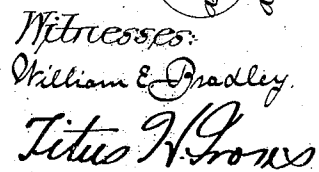 Witnesses:
William E Bradley.
Titus H. Irons